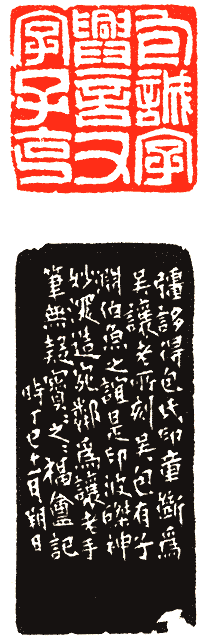 包誠字
興言又
字子亨
彊誃得包氏印童斷爲
吳讓老所刻吳包有子
淵伯魚之誼是印波磔神
妙深造宛鄰爲讓老手
筆無疑寶之〻楬盦記
時丁巳十二月朔日